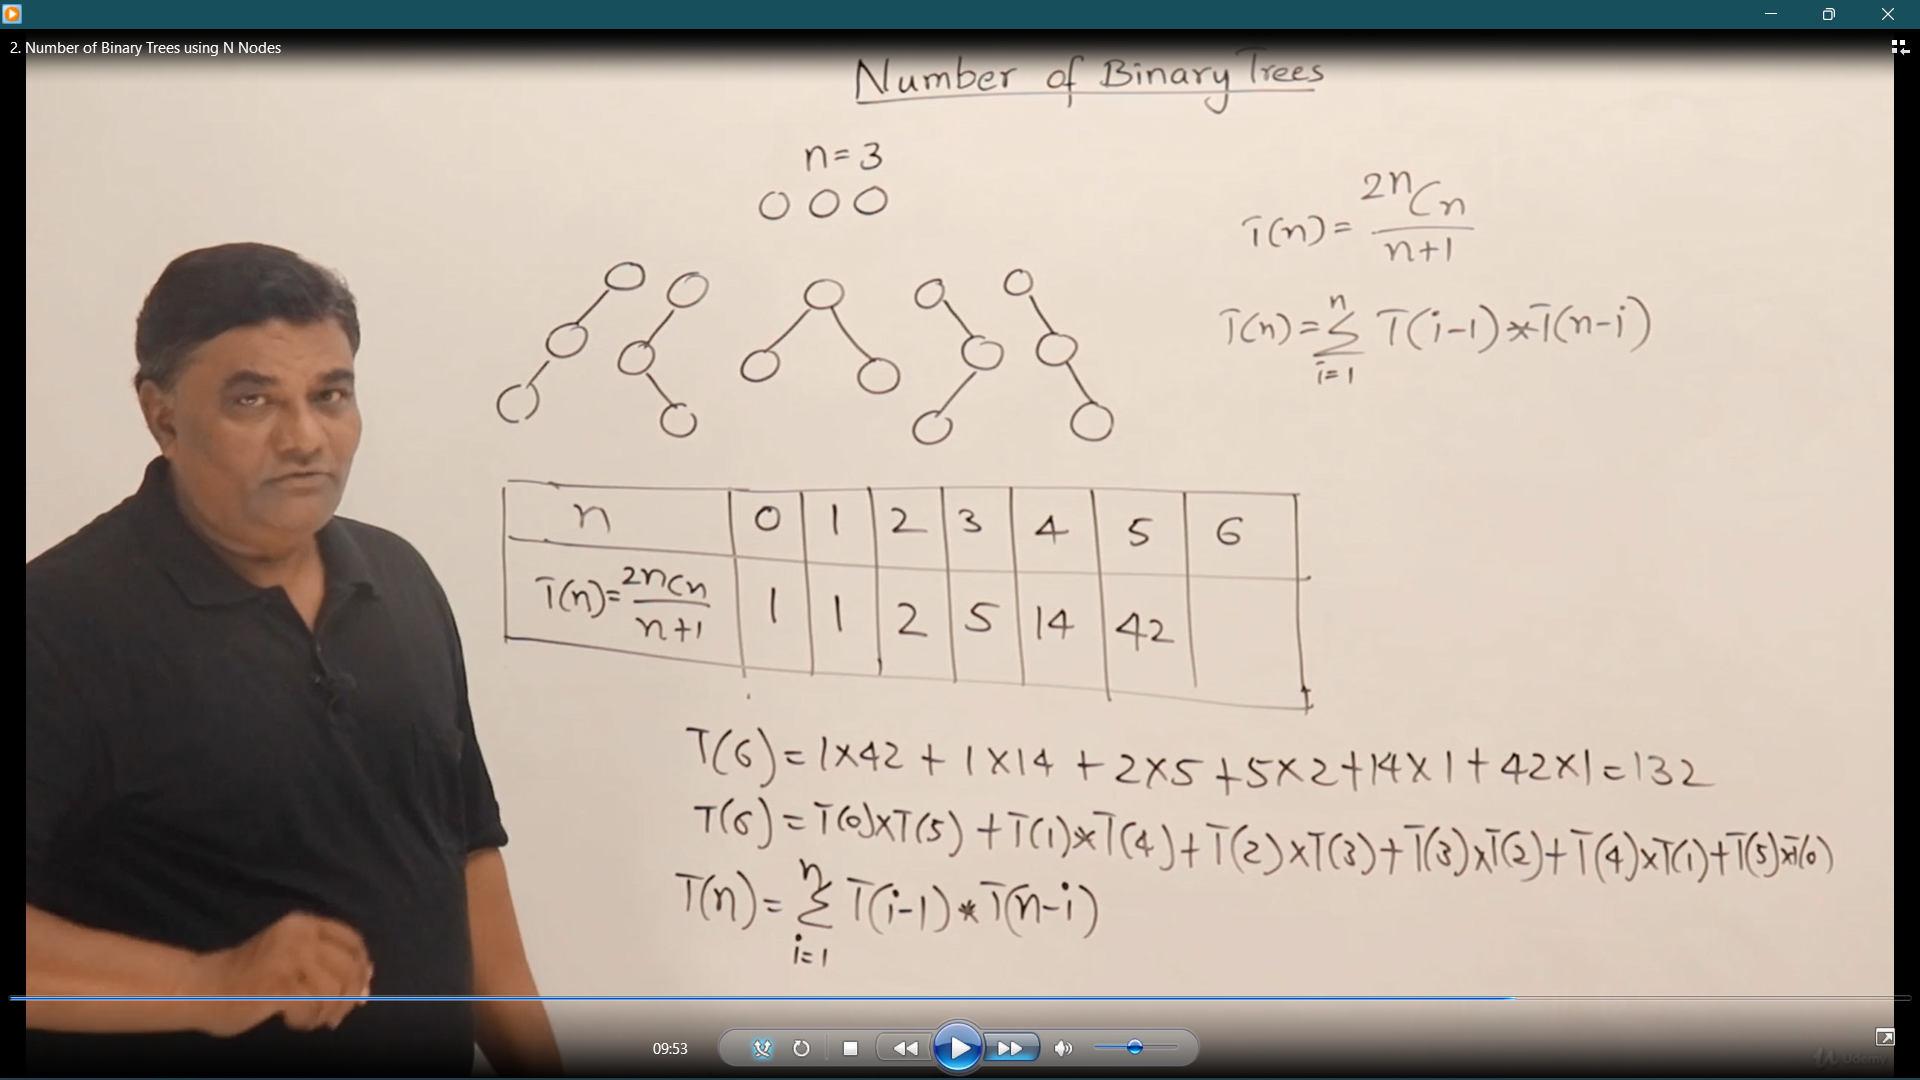 2. Number of Binary Trees using N Nodes
Number of Binary Trees
n=3
T(n)= 2nCn / n+1
T(n)= n Σ i=1 T(i-1)*T(n-i)
n 0 1 2 3 4 5 6
T(n)= 2nCn / n+1 1 1 2 5 14 42
T(6)=1×42 + 1×14 + 2×5 +5×2+14×1+42×1=132
T(6)=T(0)×T(5) +T(1)*T(4)+T(2)×T(3)+T(3)×T(2)+T(4)×T(1)+T(5)×T(0)
T(n)= n Σ i=1 T(i-1)*T(n-i)
09:53
Udemy